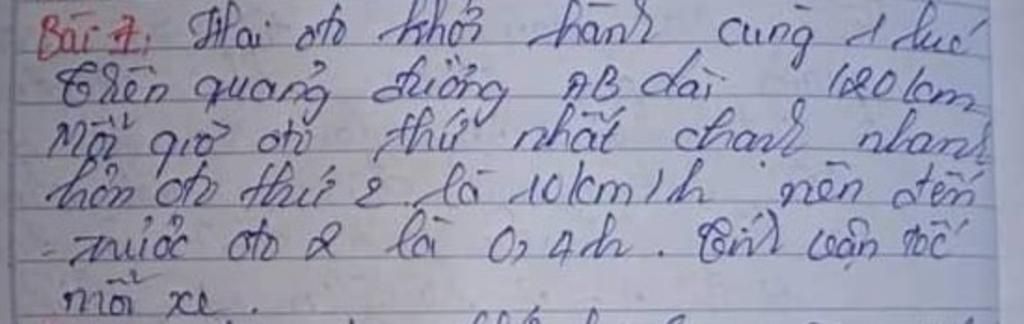 Bài 7: Hai ôtô khởi hành cùng 1 lúc
trên quãng đường AB dài 120km
Mỗi giờ ôtô thứ nhất chạy nhanh
hơn ôtô thứ 2 là 10km/h nên đến
trước ôtô 2 là 0,4h. Tính vận tốc
mỗi xe.